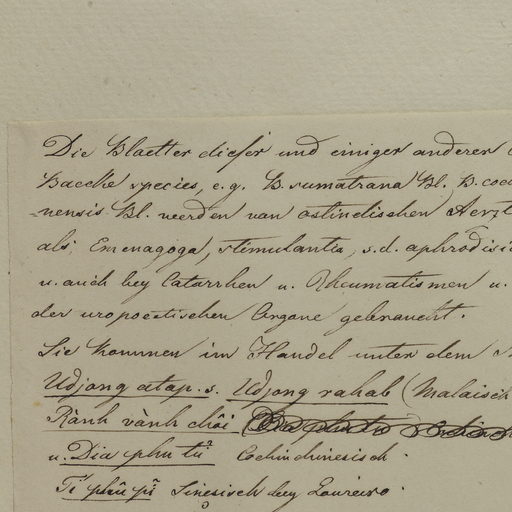 Die Blaetter dieser und einiger anderer
Baeckea species, e.g. B. sumatrana Bl. B. coc
nensis Bl. werden van ostindischen Aerzt
als Emenagoga, stimulantia, s.d. aphrodisi
u. auch bey Catarrhen u. Rheumatismen u.
der uropoetischen Organe gebraucht.
Sie kommen im Handel unter dem
Udjong atap. s. Udjong rahab (Malaisch
Rành vành chôi
u. Dia phu tử Cochinchinesisch.
Tí phū pì Sinesisch bey Loureiro.